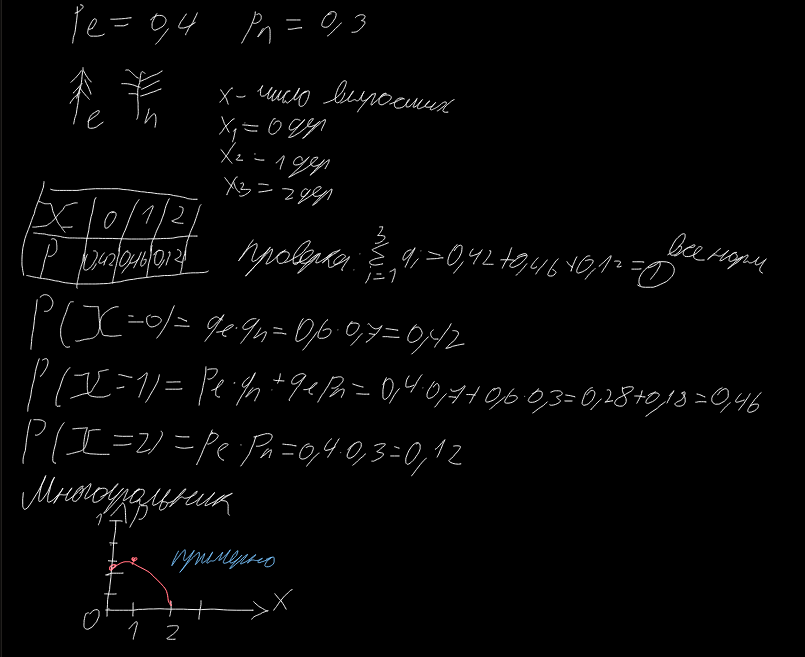 Pe = 0,4 Pn = 0,3
e n
X - число выросших
X1 = 0 дер
X2 - 1 дер
X3 = 2 дер
X 0 1 2
P 0,42 0,46 0,12
проверка: 3 Σ i=1 qi = 0,42 + 0,46 + 0,12 = 1 все норм
P(X=0) = qe · qn = 0,6 · 0,7 = 0,42
P(X=1) = Pe · qn + qe Pn = 0,4 · 0,7 + 0,6 · 0,3 = 0,28 + 0,18 = 0,46
P(X=2) = Pe · Pn = 0,4 · 0,3 = 0,12
Многоугольник
1 P
примерно
0 1 2 X